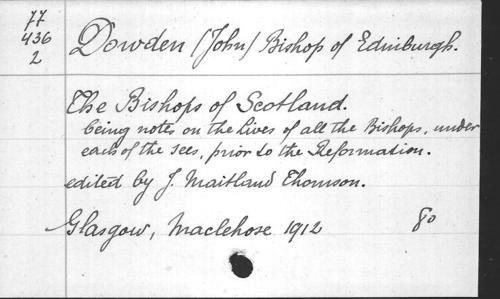 77
436
2
Dowden (John) Bishop of Edinburgh.
The Bishops of Scotland.
being notes on the lives of all the Bishops, under
each of the sees, prior to the Reformation.
edited by J. Maitland Thomson.
Glasgow, Maclehose 1912 8o